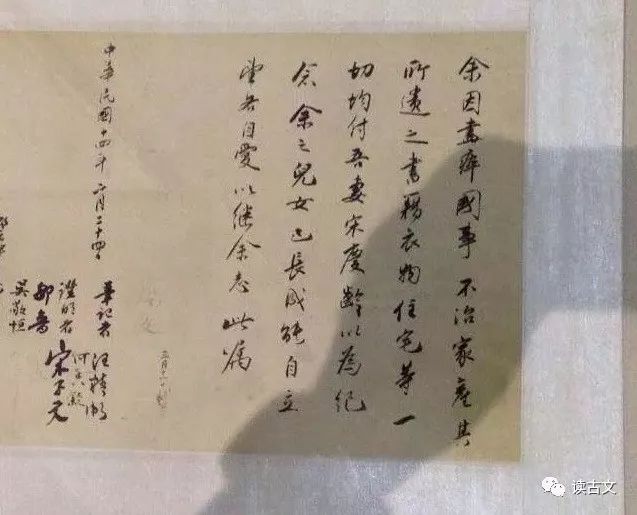 余因盡瘁國事 不治家產其
所遺之書籍衣物住宅等一
切均付吾妻宋慶齡以為紀
念余之兒女已長成能自立
望各自愛以継余志此屬
孫文 三月十一日
中華民國十四年 二月二十四日
筆記者 汪精衛
證明者 何香凝
鄒魯 宋子文
吳敬恒
读古文